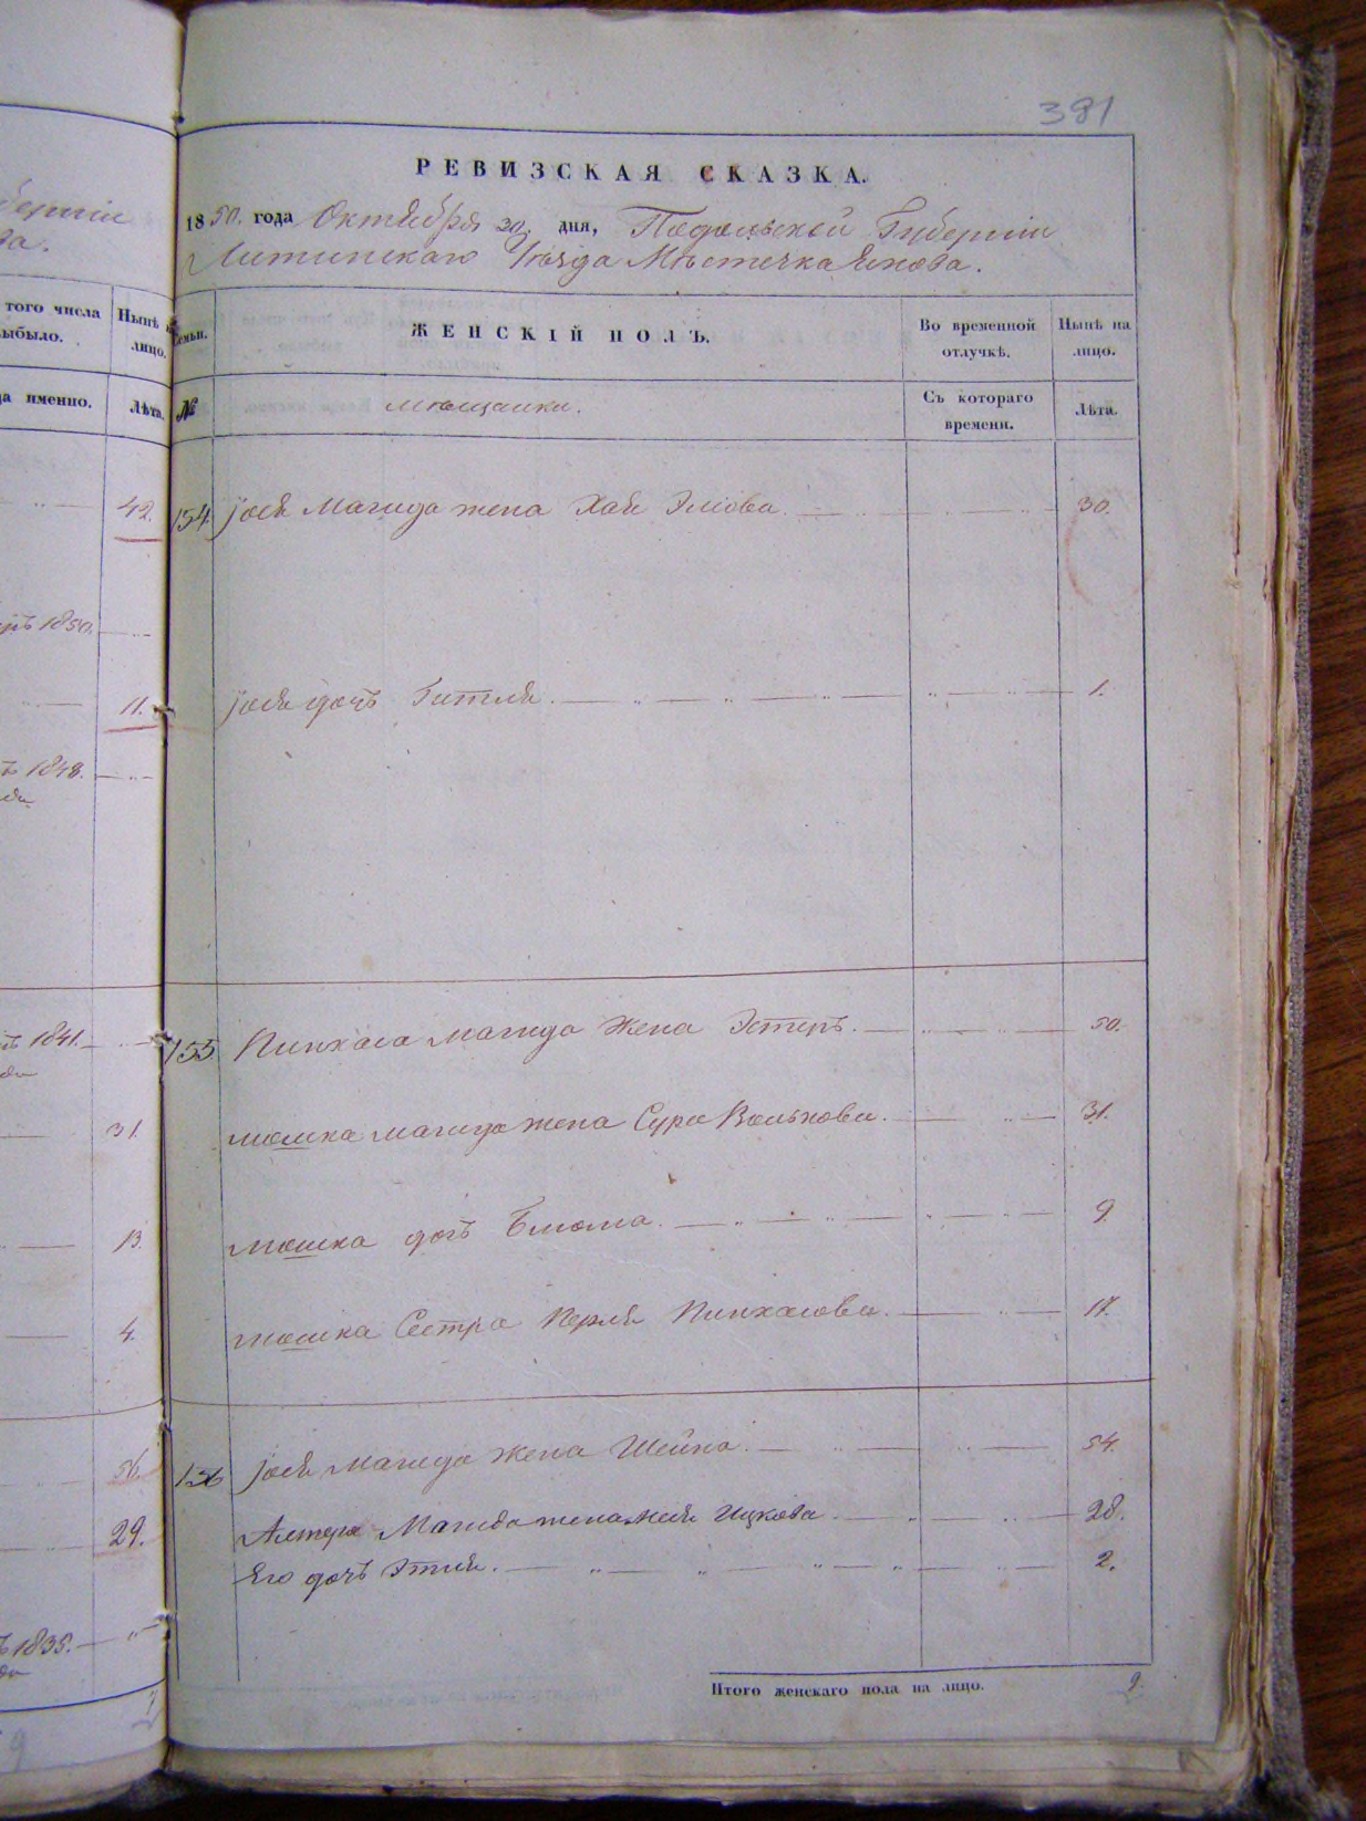 381
РЕВИЗСКАЯ СКАЗКА.
1850. года Октября 20. дня, Подольской Губерніи
Литинскаго Уѣзда Мѣстечка Янова.
того числа
выбыло.
Нынѣ на
лицо.
Семьи.
ЖЕНСКІЙ ПОЛЪ.
Во временной
отлучкѣ.
Нынѣ на
лицо.
именно.
Лѣта.
№
мѣщанки.
Съ котораго
времени.
Лѣта.
42.
154. Іося Магида жена Хая Элiова. 30.
1850.
11. Іося дочь Гитля. 1.
1848.
1841.
155. Пинхаса Магида жена Эстеръ. 50.
31. Мошка Магида жена Сура Волькова. 31.
13. Мошка дочь Блюма. 9.
4. Мошка Сестра Перля Пинхасова. 17.
56. 156 Іося Магида жена Шейна. 54.
29. Алтера Магида жена Ицкова. 28.
Его дочь Этля. 2.
1835.
Итого женскаго пола на лицо. 9.